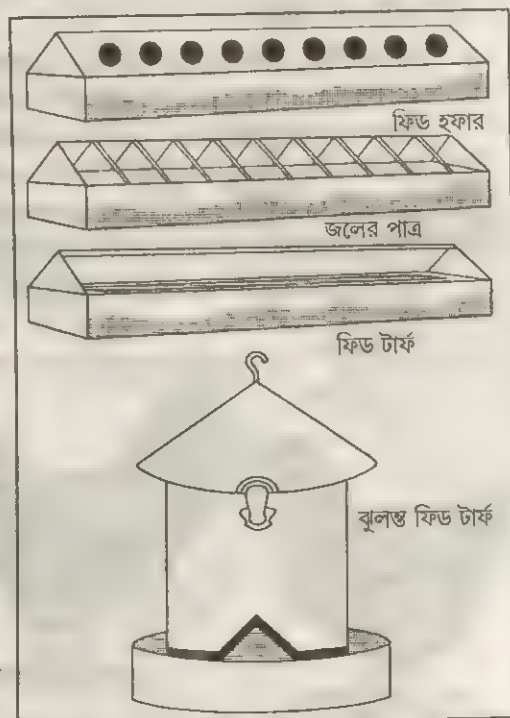 ফিড হফার
জলের পাত্র
ফিড টার্ফ
ঝুলন্ত ফিড টার্ফ